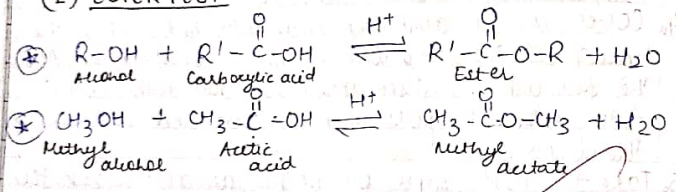 R-OH + R'-C-OH ⇌ R'-C-O-R + H2O
O O
H+
Alcohol Carboxylic acid Ester
CH3OH + CH3-C-OH ⇌ CH3-C-O-CH3 + H2O
O O
H+
Methyl alcohol Acetic acid Methyl acetate